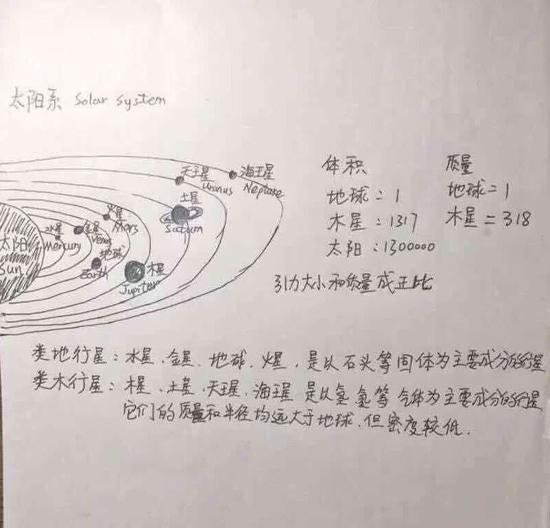 太阳系 Solar System
体积
地球=1
木星:1317
太阳:1300000
质量
地球=1
木星=318
引力大小和质量成正比
天王星
Uranus
海王星
Neptune
土星
Saturn
火星
Mars
金星
Venus
水星
Mercury
地球
Earth
木星
Jupiter
太阳
Sun
类地行星:水星、金星、地球、火星,是以石头等固体为主要成分的行星
类木行星:木星、土星、天王星、海王星 是以氢氦等气体为主要成分的行星
它们的质量和半径均远大于地球,但密度较低.